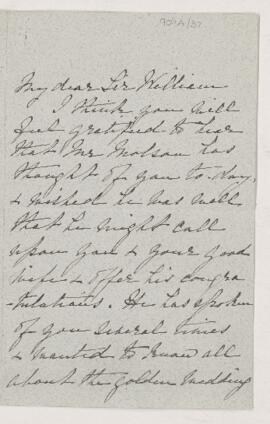 909A/37
My dear Sir William
I think you will
feel gratified to hear
that Mr Molson has
thought of you to-day,
& wished he was well
that he might call
upon you & your good
wife & offer his congra
-tulations. He has spoken
of you several times
& wanted to know all
about the Golden Wedding